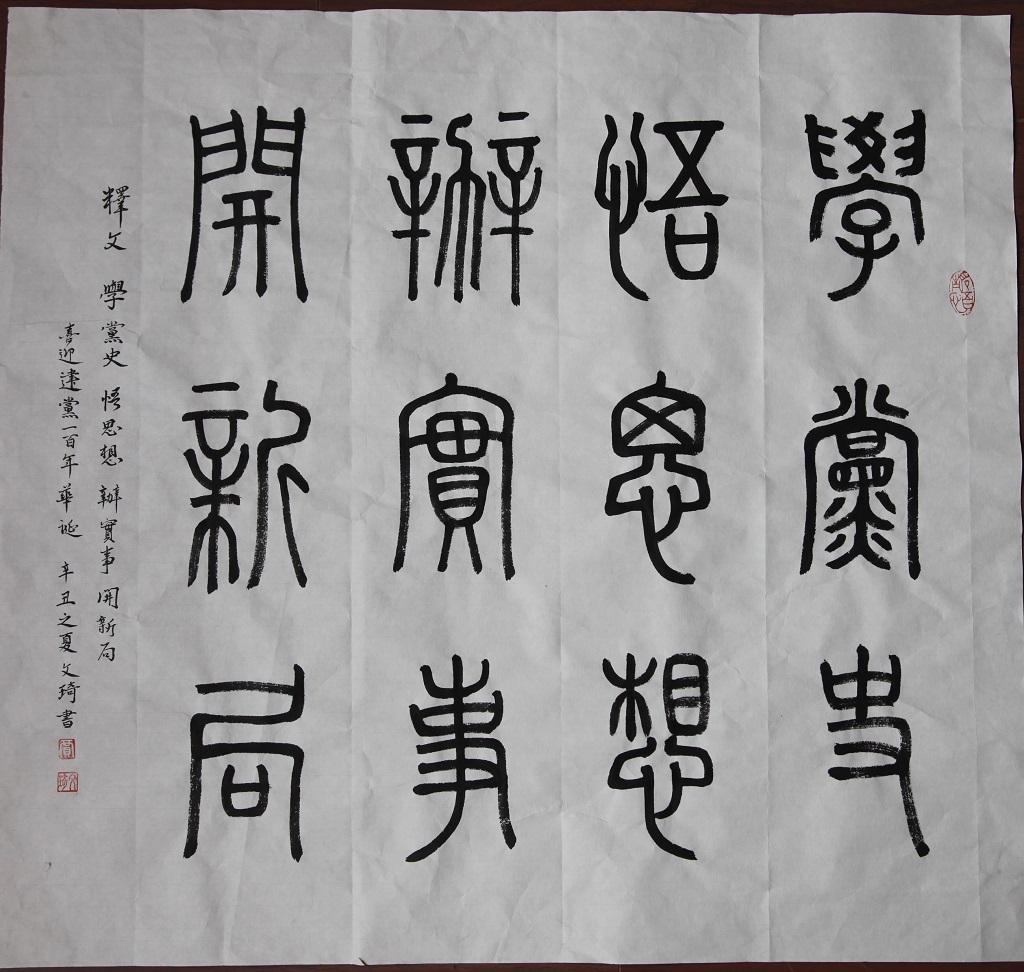 學黨史
悟思想
辦實事
開新局
釋文 學黨史 悟思想 辦實事 開新局
喜迎建黨一百年華誕 辛丑之夏文琦書